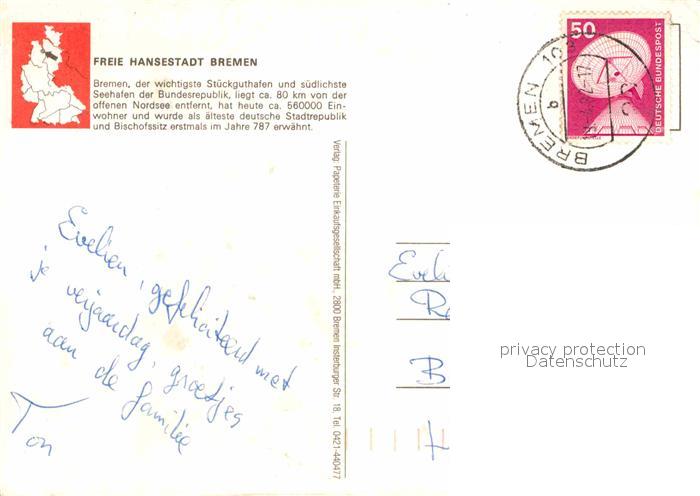 FREIE HANSESTADT BREMEN
Bremen, der wichtigste Stückguthafen und südlichste
Seehafen der Bundesrepublik, liegt ca. 80 km von der
offenen Nordsee entfernt, hat heute ca. 560000 Ein-
wohner und wurde als älteste deutsche Stadtrepublik
und Bischofssitz erstmals im Jahre 787 erwähnt.
50
DEUTSCHE BUNDESPOST
BREMEN
b
Verlag: Papeterie Einkaufsgesellschaft mbH, 2800 Bremen Insterburger Str. 18, Tel. 0421-440477
Evelien, gefeliciteerd met
je verjaardag, groetjes
aan de familie
Ton
Eveli
B
privacy protection
Datenschutz